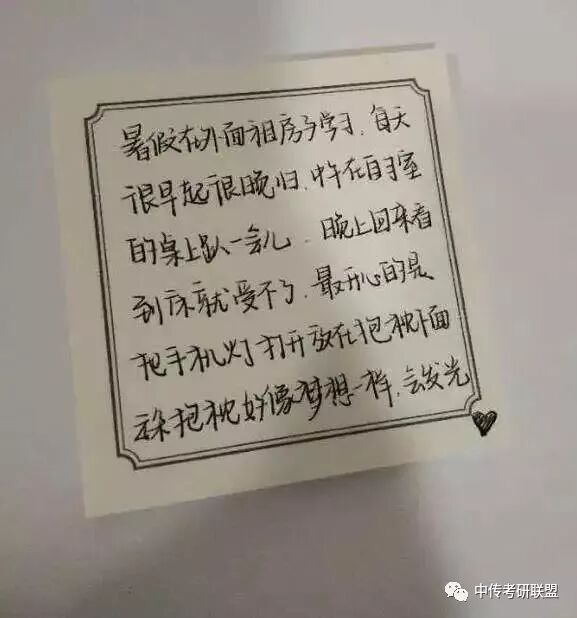 暑假在外面租房子学习.每天
很早起很晚归.中午在自习室
的桌上趴一会儿.晚上回来看
到床就受不了.最开心的是
把手机灯打开放在抱枕下面
抱枕好像梦想一样.会发光
中传考研联盟